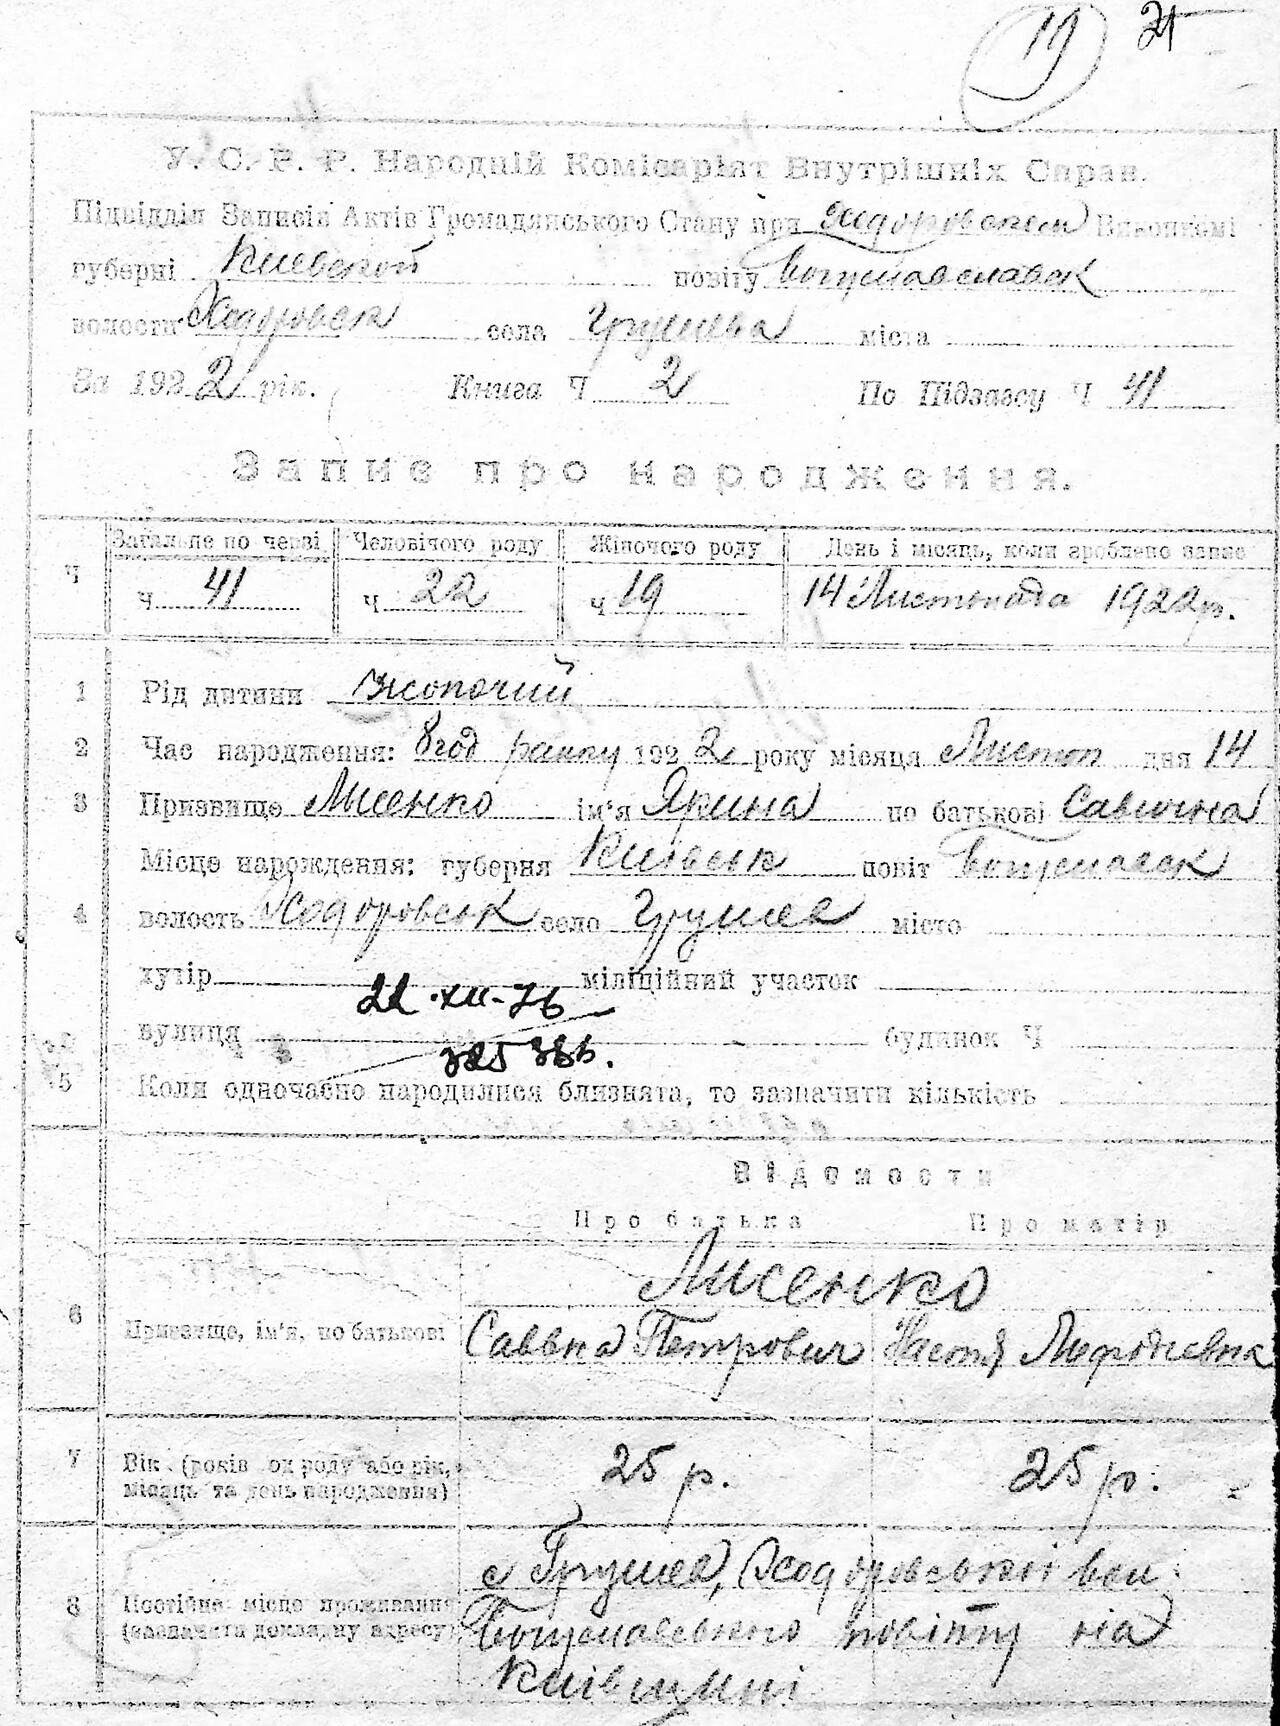 19 21
У. С. Р. Р. Народній Комісаріат Внутрішніх Справ.
Підвідділ Записів Актів Громадянського Стану при Ходоровском Виконкомі
губерні Киевской повіту Богуславславск
волости Ходоровск села Грушева міста
За 1922 рік. Книга Ч 2 По Підзагсу Ч 41
Запис про народження.
Загальне по черзі Человічого роду Жіночого роду День і місяць, коли зроблено запис
Ч ч 41 ч 22 ч 19 14 Листопада 1922 р.
1 Рід дитини жоночий
2 Час народження: 8 год ранку 1922 року місяця Листоп дня 14
3 Призвище Лисенко ім'я Ярина по батькові Савична
Місце народження: губерня Київськ повіт Богуславск
4 волость Ходоровськ село Грушев місто
хутір міліційний участок
22·XII-76
вулиця будинок Ч
5 Коли одночасно народилися близнята, то зазначити кількість
Відомости
Про батька Про матір
Лисенко
6 Призвище, ім'я, по батькові Савва Петрович Настя
7 Вік (років од роду або рік, місяць та день народження) 25 р. 25 р.
с Грушев, Ходоровської вол.
8 Постійне місце проживання (зазначити докладну адресу) Богуславського повіту на
Київщині